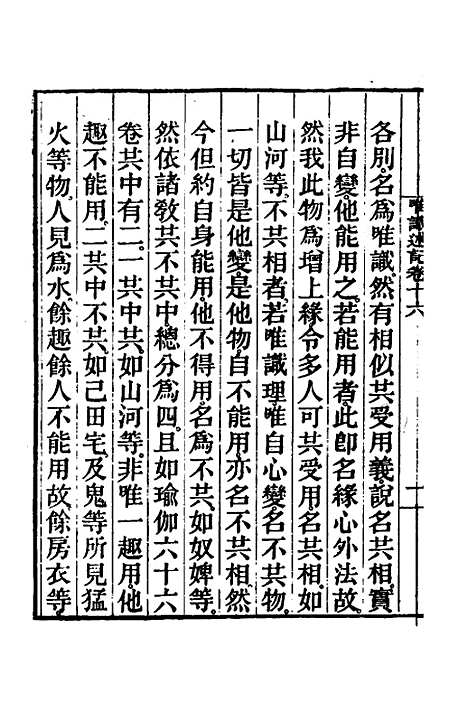 唯識述記卷十六
各別名爲唯識。然有相似共受用義。說名共相。實
非自變。他能用之。若能用者。此卽名緣心外法故。
然我此物爲增上緣。令多人可共受用。名共相。如
山河等。不共相者。若唯識理。唯自心變。名不共物。
一切皆是他變。是他物。自不能用。亦名不共相。然
今但約自身能用。他不得用。名爲不共。如奴婢等。
然依諸敎。共不共中。總分爲四。且如瑜伽六十六
卷。共中有二。一共中共。如山河等。非唯一趣用。他
趣不能用。二共中不共。如己田宅。及鬼等所見猛
火等物。人見爲水。餘趣餘人不能用故。餘房衣等。